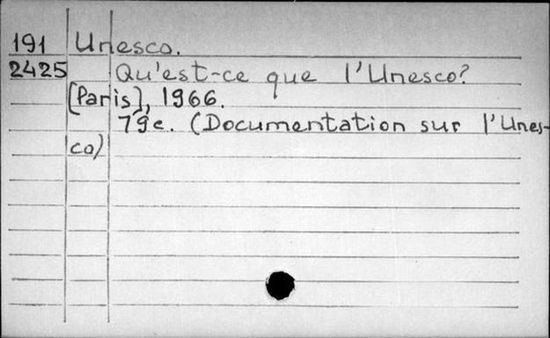 191 Unesco.
2425 Qu'est-ce que l'Unesco?
[Paris], 1966.
79e. (Documentation sur l'Unes-
co)